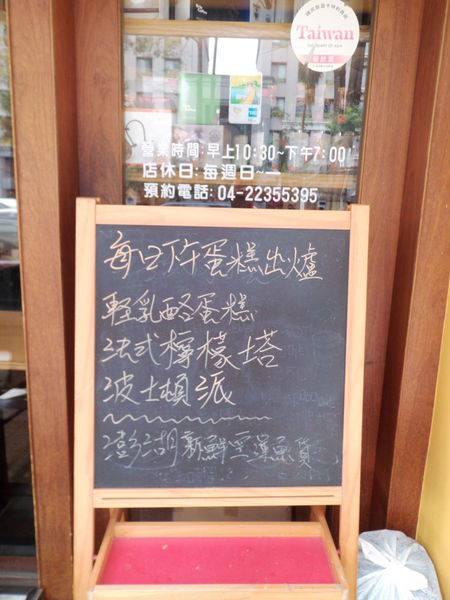 Taiwan
THE HEART OF ASIA
營業時間:早上10:30~下午7:00
店休日:每週日~一
預約電話:04-22355395
每日下午蛋糕出爐
輕乳酪蛋糕
法式檸檬塔
波士頓派
澎湖新鮮空運魚貨